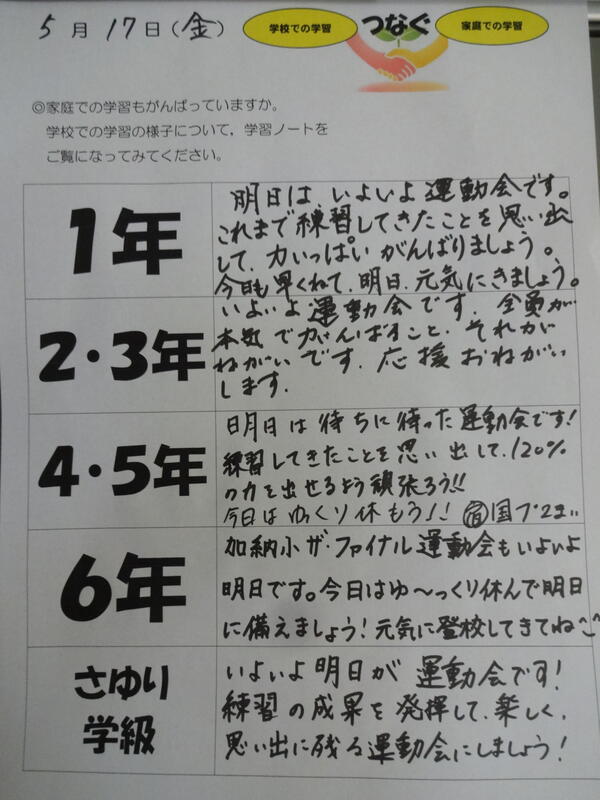 5月17日(金)
学校での学習 つなぐ 家庭での学習
◎家庭での学習もがんばっていますか。
学校での学習の様子について，学習ノートを
ご覧になってみてください。
1年
明日は、いよいよ運動会です。
これまで練習してきたことを思い出
して、力いっぱいがんばりましょう。
今日も早くねて、明日、元気にきましょう。
2・3年
いよいよ運動会です。全員が
本気でがんばること、それが
ねがいです。応援おねがい
します。
4・5年
明日は待ちに待った運動会です!
練習してきたことを思い出して、120%
の力を出せるよう頑張ろう!!
今日はゆっくり休もう!! 宿国プ2まい
6年
加納小ザ・ファイナル運動会もいよいよ
明日です。今日はゆ～っくり休んで明日
に備えましょう!元気に登校してきてね
さゆり
学級
いよいよ明日が運動会です!
練習の成果を発揮して、楽しく、
思い出に残る運動会にしましょう!